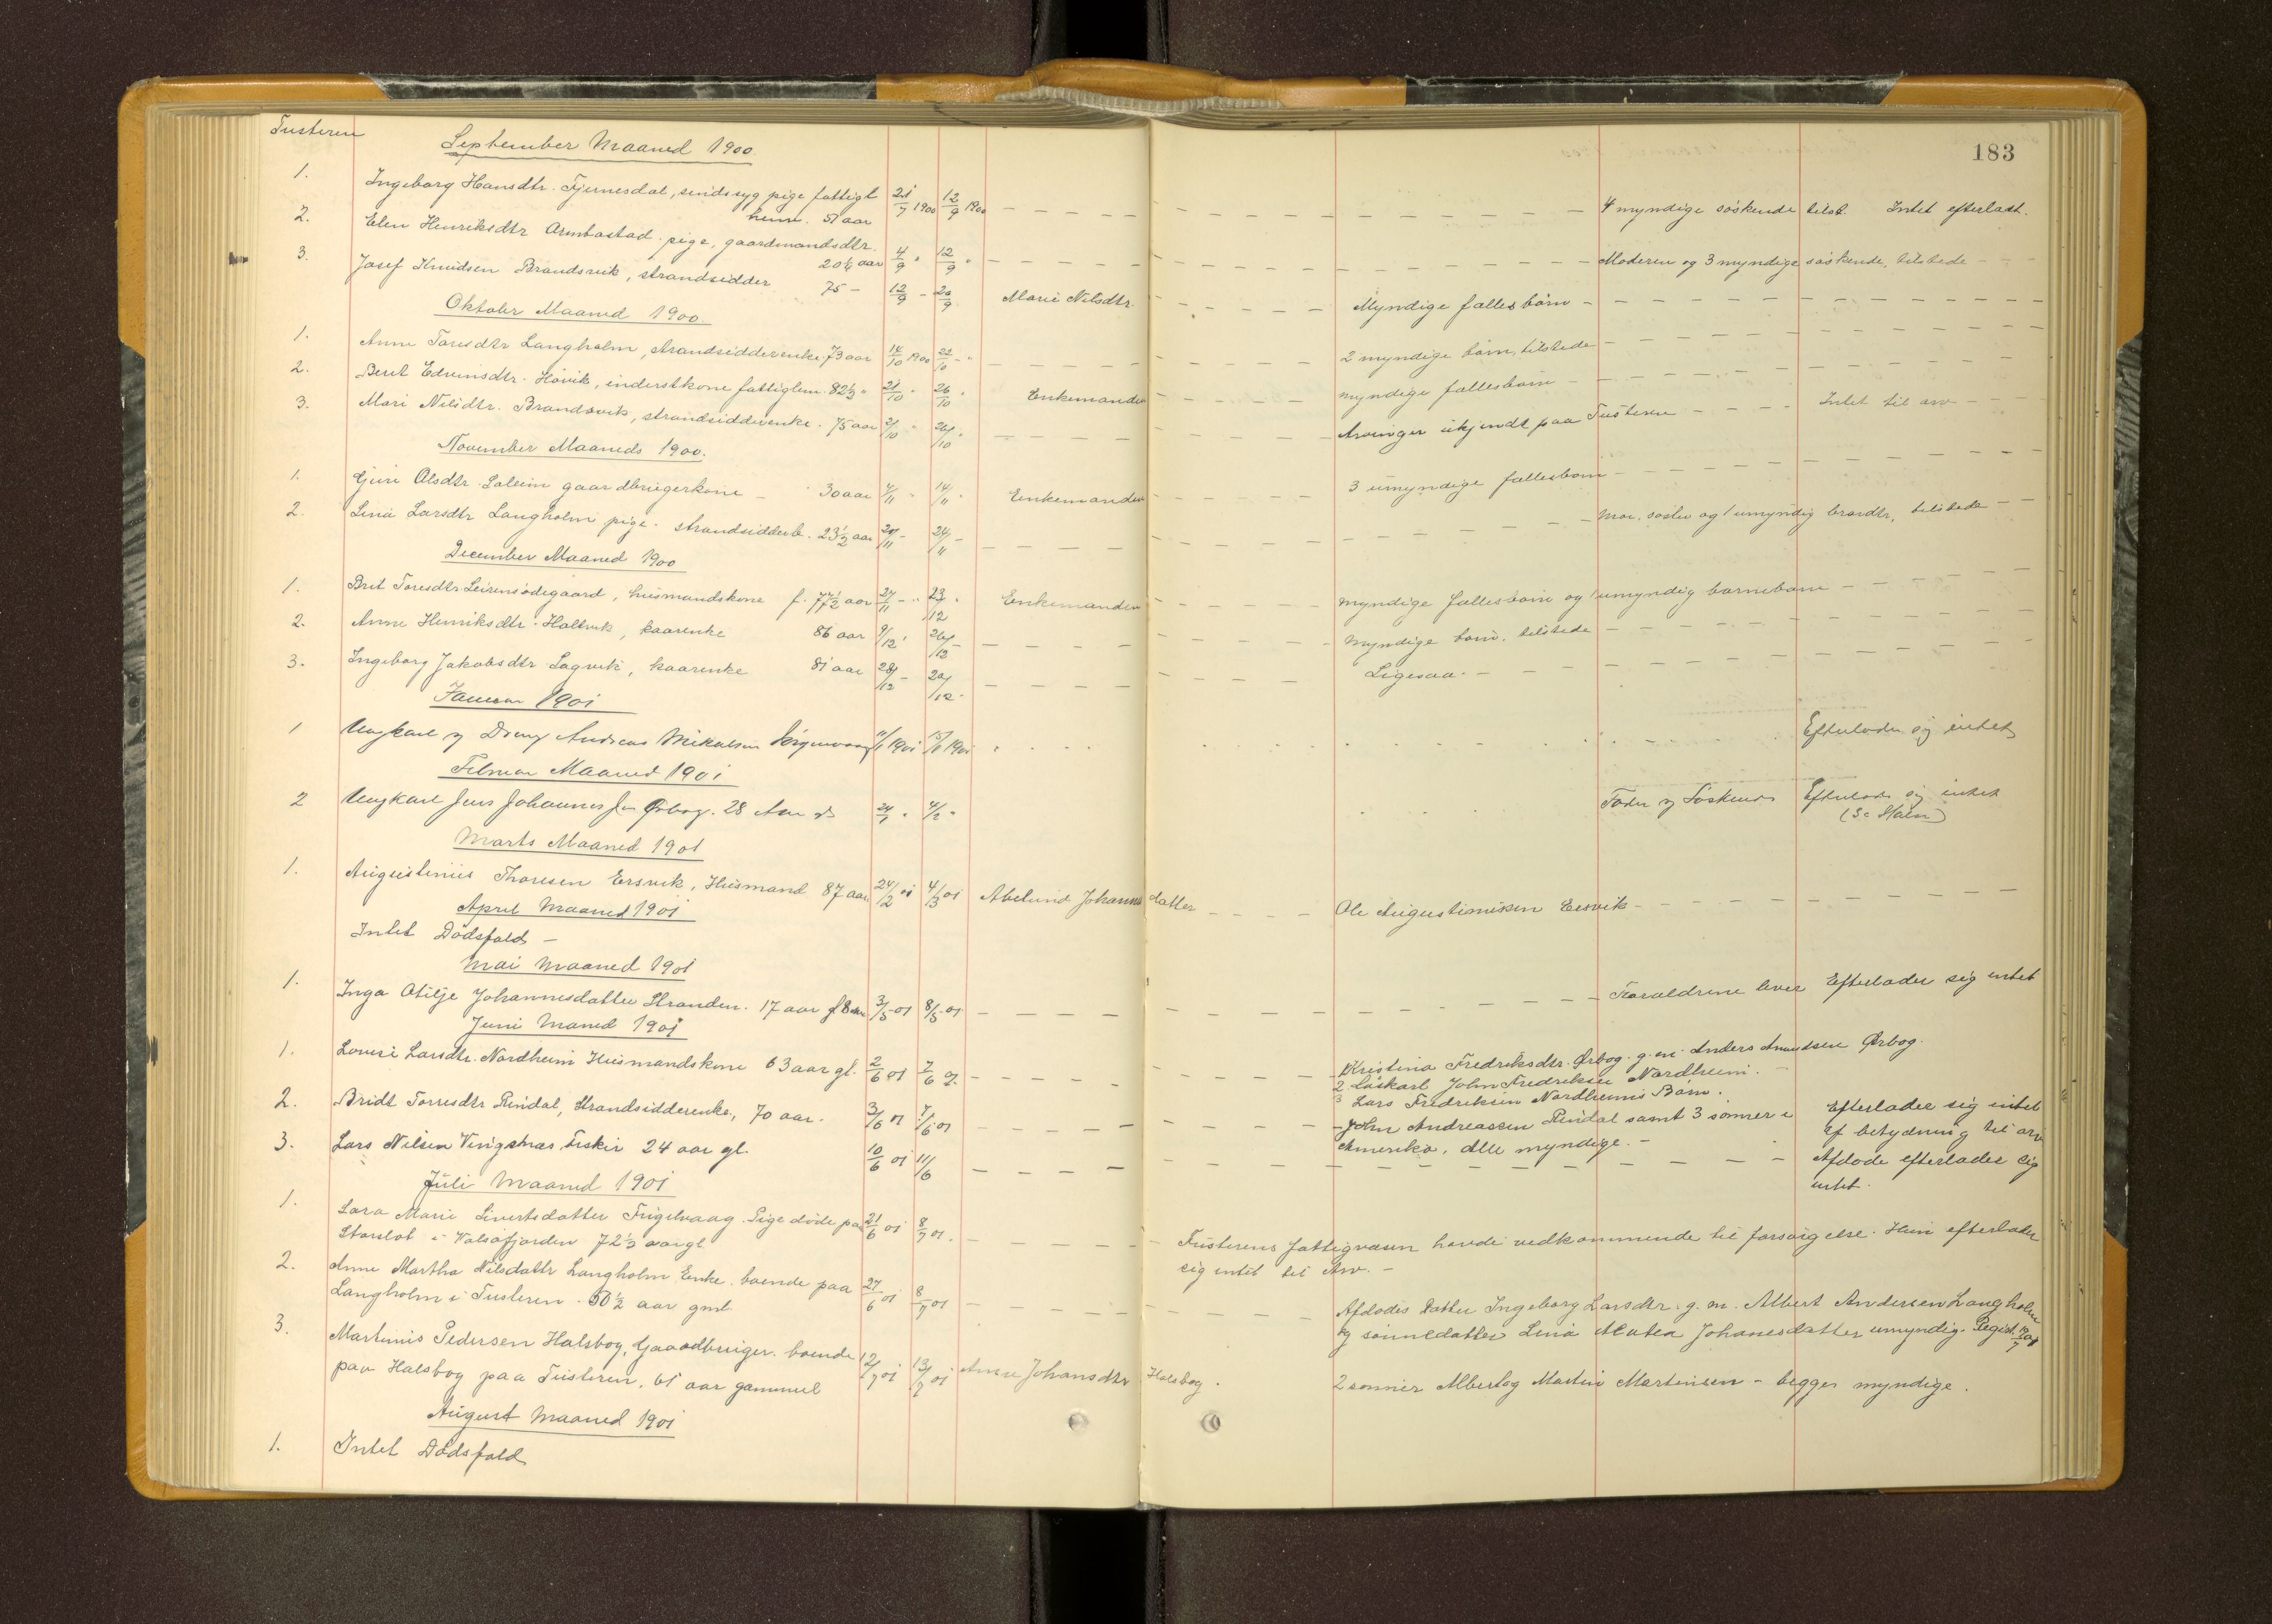 183
Tusteren
September Maaned 1900
1. Ingeborg Hansdtr. Fjernesdal, sindssyg pige fattigl 21/7 1900 12/9 1900 4 myndige søskende tilst. Intet efterladt.
hem. 51 aar
2. Elen Henriksdtr pige, gaardmandsdtr.
20 1/4 aar 4/9 " 12/9 " Moderen og 3 myndige søskende, tilstede
3. Josef Knudsen Brandsvik, strandsidder 75 - 12/9 - 20/9 Marie Nilsdtr. Myndige fællesbörn
Oktober Maaned 1900.
1. Anne Toresdtr Langholm, strandsidderenke 73 aar 14/10 1900 22/10 - " 2 myndige börn, tilstede
2. Beret Edvinsdtr. Hövik, inderstkone fattiglem. 82 1/2 " 21/10 " 26/10 " Enkemanden myndige fællesbörn
3. Mari Nilsdtr. Brandsvik, strandsidderenke. 75 aar 21/10 " 26/10 " Arvinger ukjendt paa Tusteren Intet til arv
November Maaneds 1900.
1. Guri Olsdtr. Soleim gaardbrugerkone - 30 aar 4/11 " 14/11 " Enkemanden 3 umyndige fællesbörn
2. Lina Larsdtr Langholm pige. strandsidderb. 23 1/2 aar 20/11 - 24/11 - Mor, søster og 1 umyndig tilstede
December Maaned 1900
1. Brit Toresdtr Leirensødegaard, husmandskone f. 77 1/2 aar 27/11 - " 23/12 " Enkemanden myndige fællesbörn og 1 umyndig barnebarn
2. Anne Henriksdtr. Holtvik, kaarenke 86 aar 9/12 ' 26/12 - Myndige börn, tilstede
3. Ingeborg Jakobsdtr Lagvik, kaarenke 81 aar 28/12 - 29/12 - Ligesaa.
Januar 1901
1 Ungkarl og Dreng Andreas Mikalsen 11/1 1901 15/1 1901 Efterlader sig intet
Februar Maaned 1901
2 Ungkarl Jens Johannes Jr Ørbog. 28 Aar 24/1 " 4/2 " Fader og Söskende Efterlader sig intet
Marts Maaned 1901
1. Augustinus Thoresen Ersvik, Husmand 87 aar 24/2 01 4/3 01 Abelund Johannsdatter Ole Augustinussen Ersvik
April Maaned 1901
Intet Dödsfald -
Mai Maaned 1901
1. Inga Otilje Johannesdatter Stranden. 17 aar 3/5 01 8/5 01 Foraeldrene lever Efterlader sig intet
Juni Maned 1901
1. Lovise Larsdtr. Nordheim Husmandskone 63 aar gl. 2/6 01 7/6 01 Kristina Fredriksdtr. Ørbog. g. m. Anders Amundsen Ørbog.
2 Løskarl John Fredriksen Nordheim.
3 Lars Fredriksen Nordheims Børn.
2. Bridt Torresdtr Rindal, Strandsidderenke, 70 aar. 3/6 01 7/6 01 John Andreassen Rindal samt 3 sønner i Efterlader sig intet
Amerika, alle myndige. - af betydning til arv
3. Lars Nilsen Vingsnæs, Fisker 24 aar gl. 10/6 01 11/6 Afdøde efterlader sig
intet.
Juli Maaned 1901
1. Lara Marie Sivertsdatter Frigelvaag. Pige döde paa 21/6 01 8/7 01. Tusterens fattigvæsen havde vedkommende til forsørgelse. Hun efterlader
i Valsøfjorden 72 1/3 aar gl sig intet til Arv. -
2. Anne Martha Nilsdattr Langholm Enke. boende paa 27/6 01 8/7 01 Afdødes datter Ingeborg Larsdtr. g. m. Albert Andersen Langholm
Langholm i Tusteren. 50 1/2 aar gml. og sønnedatter Lina Johanesdatter umyndig.
3. Martinus Pedersen Halsbog, Gaardbruger. boende 12/7 01 13/7 01 Anne Johansdtr Halsbog. 2 sønner Albert og Martin Martinsen - begger myndige.
paa Halsbog paa Tusteren. 61 aar gammel
August Maaned 1901
1. Intet Dødsfald